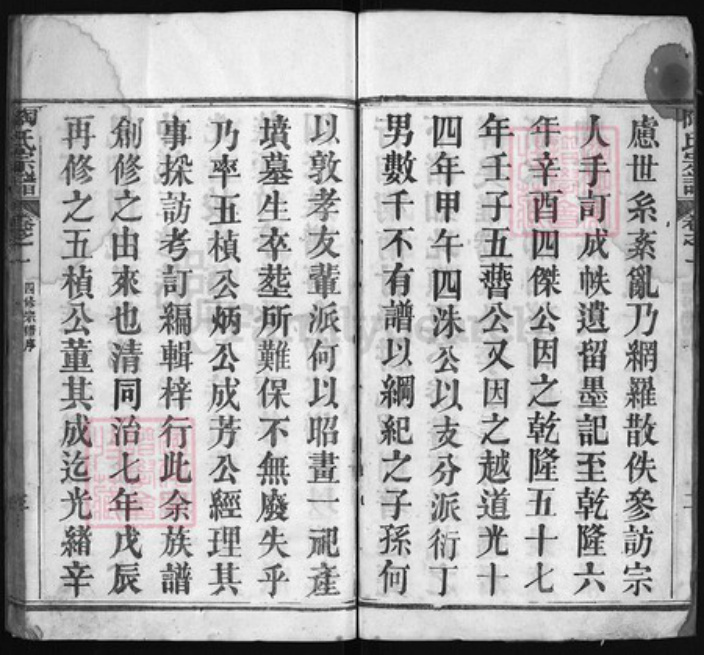 慮世系紊亂乃網羅散佚參訪宗
人手訂成帙遺留墨記至乾隆六
年辛酉四傑公因之乾隆五十七
年壬子五聾公又因之越道光十
四年甲午四洙公以支分派衍丁
男數千不有譜以綱紀之子孫何
以敦孝友輩派何以昭晝一祀產
墳墓生卒塟所難保不無廢失乎
乃率五楨公炳公成芳公經理其
事採訪考訂編輯梓行此余族譜
創修之由來也清同治七年戊辰
再修之五楨公董其成迄光緒辛
陶氏宗譜
卷之一
四修宗譜序